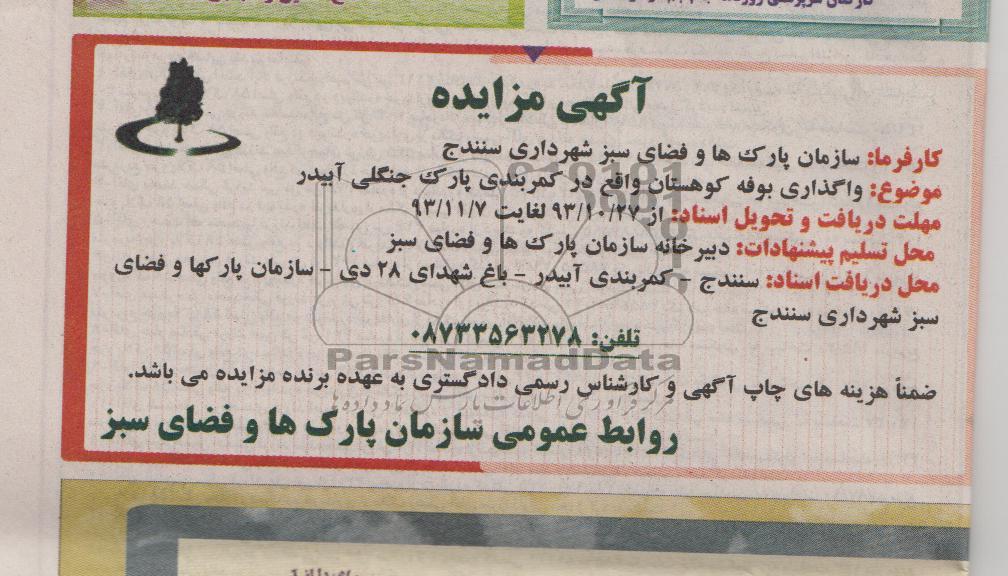 آگهی مزایده
کارفرما: سازمان پارک ها و فضای سبز شهرداری سنندج
موضوع: واگذاری بوفه کوهستان واقع در کمربندی پارک جنگلی آبیدر
مهلت دریافت و تحویل اسناد: از ۹۳/۱۰/۲۷ لغایت ۹۳/۱۱/۷
محل تسلیم پیشنهادات: دبیرخانه سازمان پارک ها و فضای سبز
محل دریافت اسناد: سنندج - کمربندی آبیدر - باغ شهدای ۲۸ دی - سازمان پارکها و فضای
سبز شهرداری سنندج
تلفن: ۰۸۷۳۳۵۶۳۲۷۸
ParsNamadData
ضمناً هزینه های چاپ آگهی و کارشناس رسمی دادگستری به عهده برنده مزایده می باشد.
مرکز فرآوری اطلاعات پارس نماد داده ها
روابط عمومی سازمان پارک ها و فضای سبز